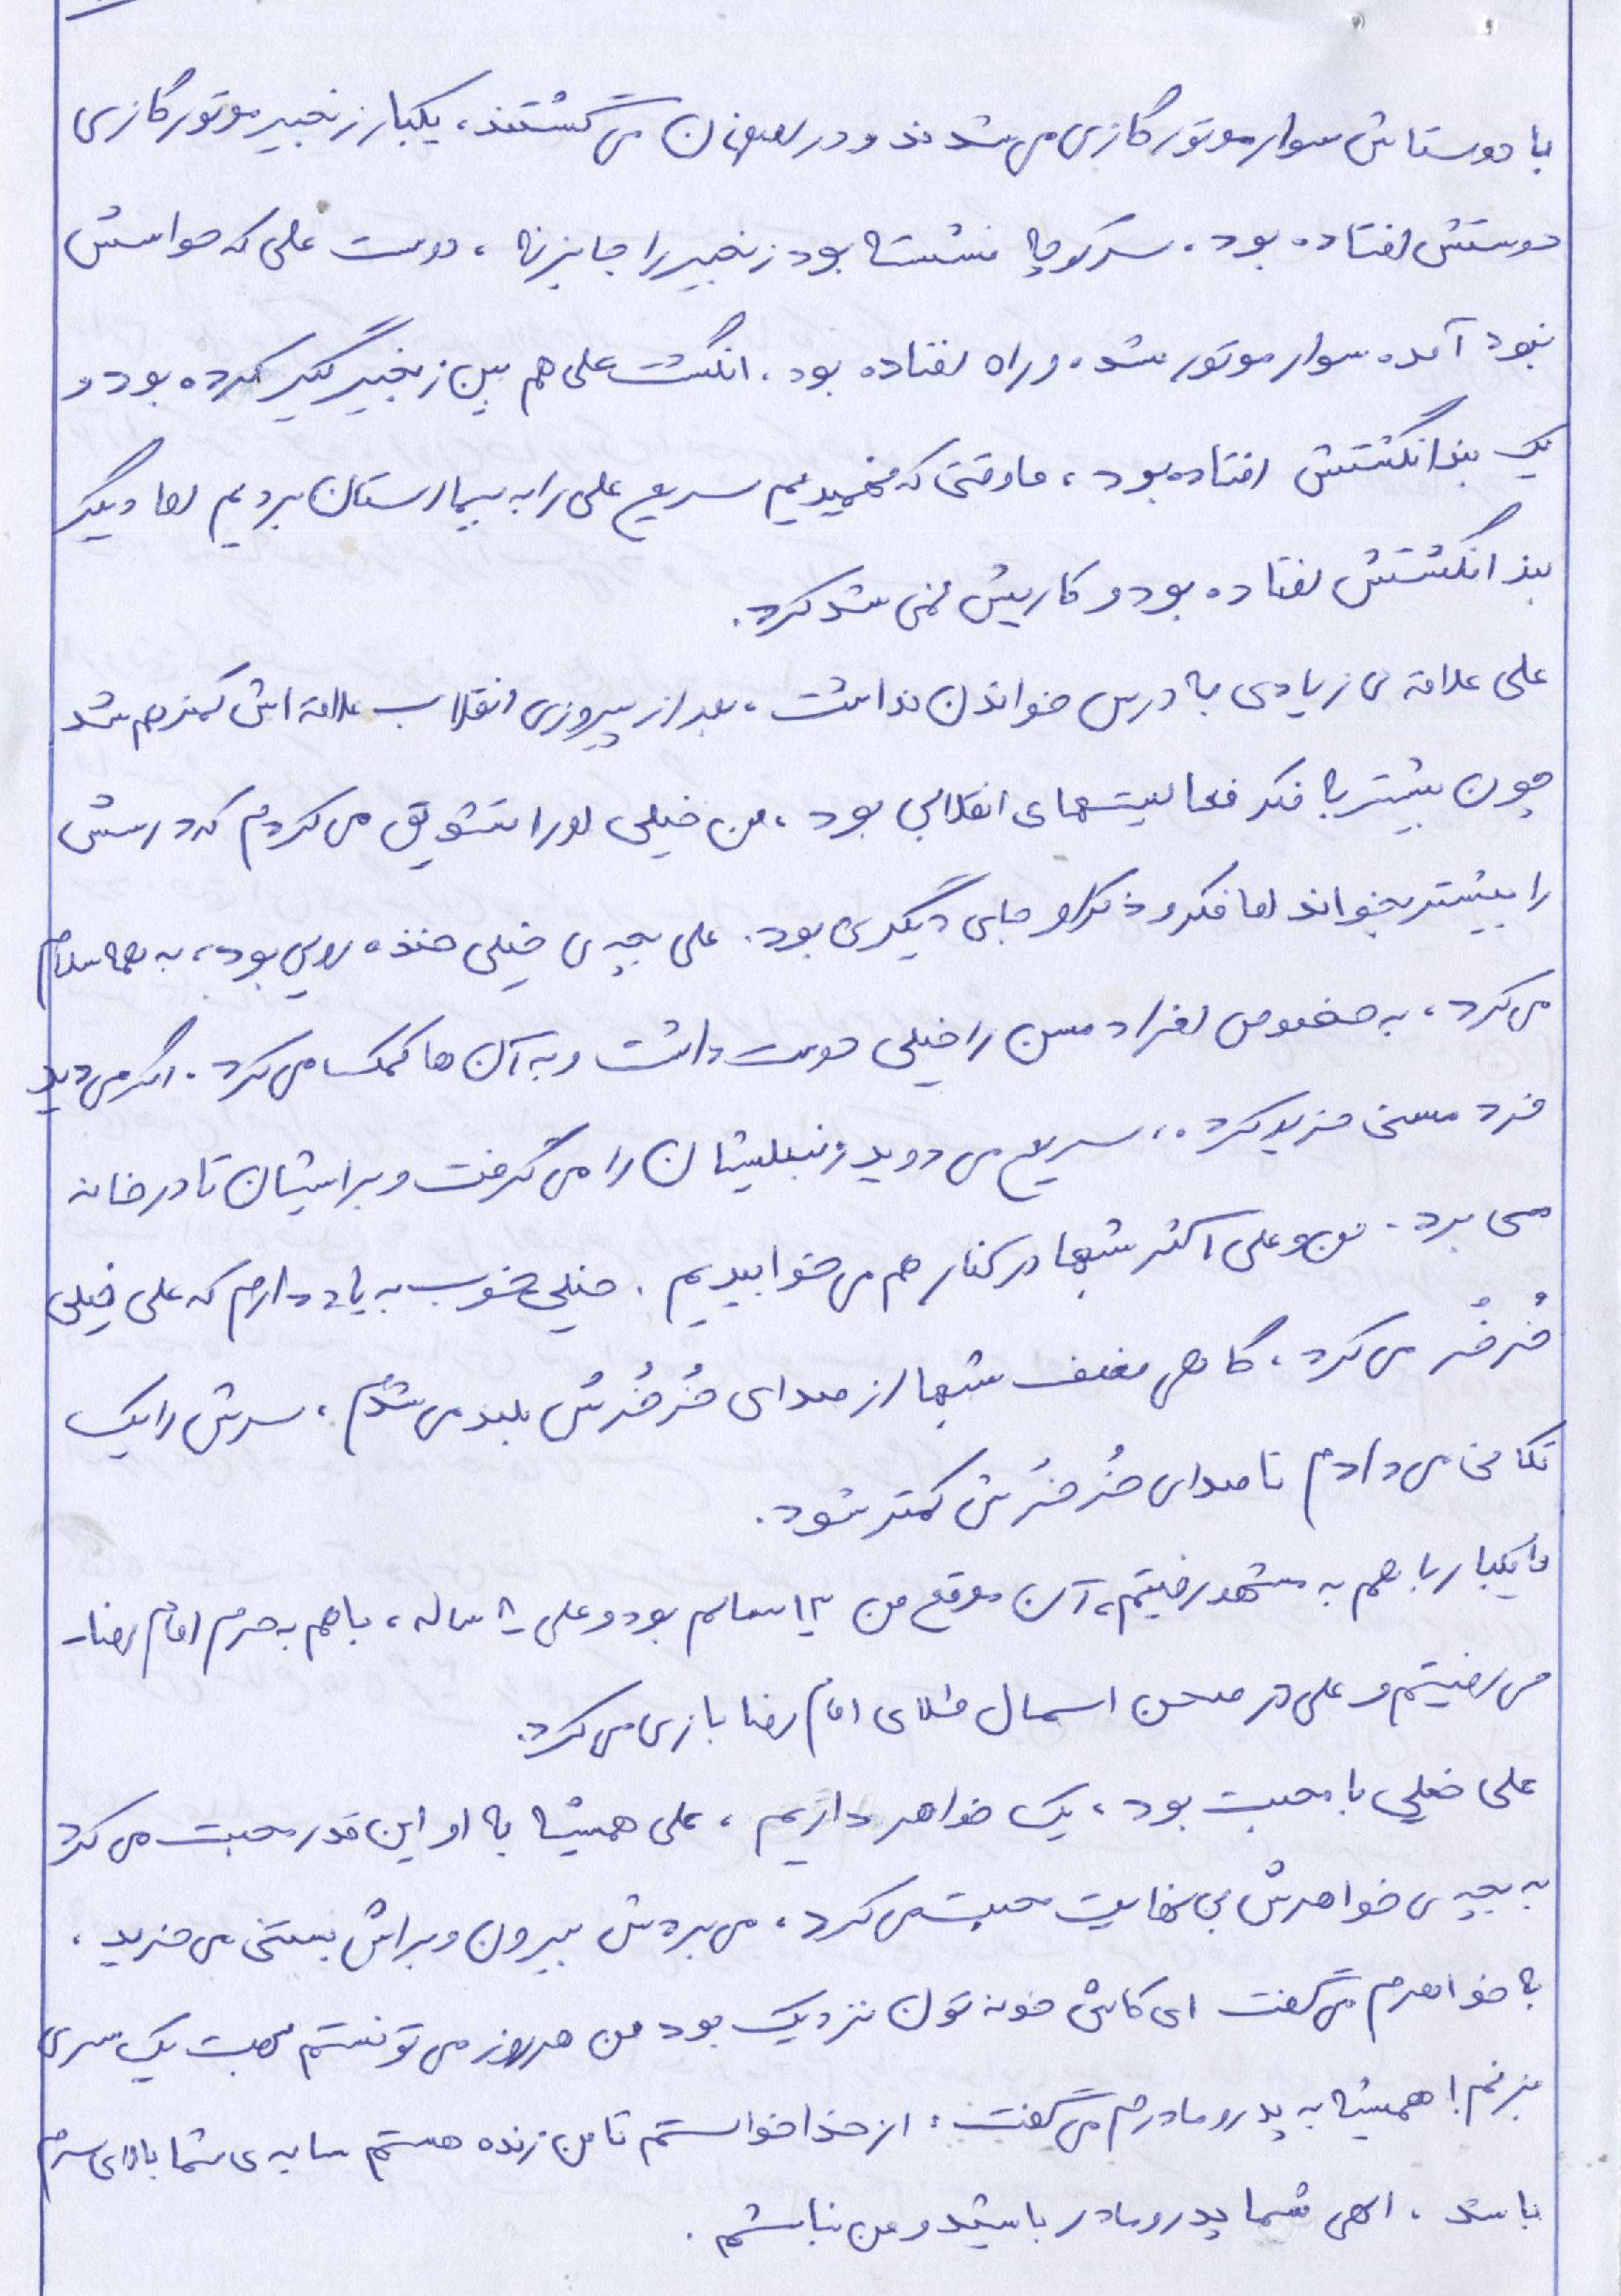 با دوستانش سوار موتور گازی می شدند و در اصفهان می گشتند، یکبار زنجیر موتور گازی
دوستش افتاده بود، سر کوچه نشسته بود زنجیر را جا بزنه، دوست علی که حواسش
نبود آمده سوار موتور شده و راه افتاده بود. انگشت علی هم بین زنجیر گیر کرده بود و
یک بند انگشتش افتاده بود، ما وقتی که فهمیدیم سریع علی را به بیمارستان بردیم اما دیگر
بند انگشتش افتاده بود و کاریش نمی شد کرد.
علی علاقه ی زیادی به درس خواندن نداشت، بعد از پیروزی انقلاب علاقه اش کمتر هم شد
چون بیشتر به فکر فعالیتهای انقلابی بود، من خیلی او را تشویق می کردم که درسش
را بیشتر بخواند اما فکر و ذکر او جای دیگری بود. علی بچه ی خیلی خنده رویی بود، به همه سلام
می کرد، به خصوص افراد مسن را خیلی دوست داشت و به آن ها کمک می کرد. اگر می دید
فرد مسنی خرید کرده، سریع می دوید زنبیلشان را می گرفت و برایشان تا در خانه
می برد. من و علی اکثر شبها در کنار هم می خوابیدیم. خیلی خوب به یاد دارم که علی خیلی
خُرخُر می کرد، گاهی نصف شبها از صدای خُرخُرش بلند می شدم، سرش را یک
تکانی می دادم تا صدای خُرخُرش کمتر شود.
ما یکبار با هم به مشهد رفتیم، آن موقع من ۱۳ سالم بود و علی ۸ ساله، با هم به حرم امام رضا
می رفتیم و علی در صحن اسمال طلای امام رضا بازی می کرد.
علی خیلی با محبت بود، یک خواهر داریم، علی همیشه به او این قدر محبت می کرد
به بچه ی خواهرش بی نهایت محبت می کرد، می بردش بیرون و براش بستنی می خرید،
به خواهرم می گفت ای کاش خونه تون نزدیک بود من هر روز می تونستم بهت یک سری
بزنم! همیشه به پدر و مادرم می گفت: از خدا خواستم تا من زنده هستم سایه ی شما بالای سرم
باشد، الهی شما پدر و مادر باشید و من نباشم.